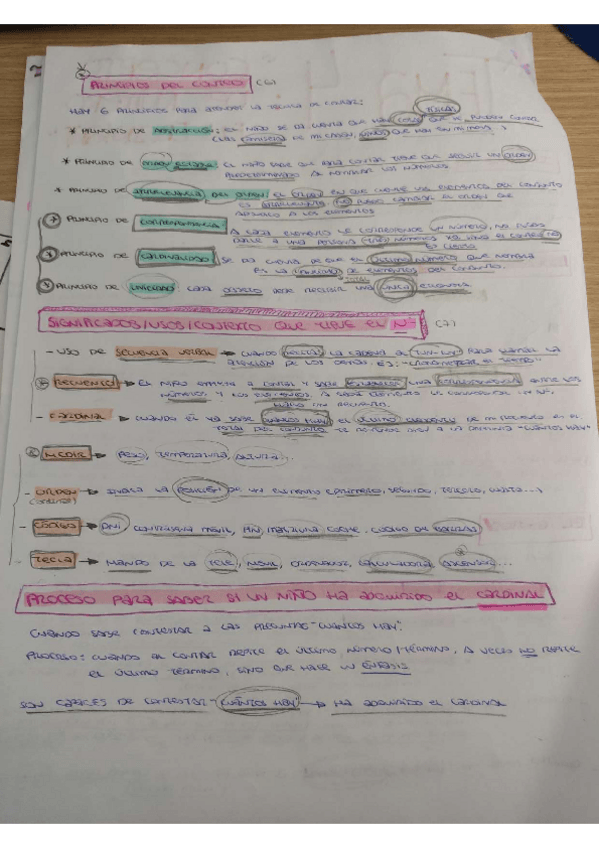 PRINCIPIOS DEL CONTEO (6)
HAY 6 PRINCIPIOS PARA APRENDER LA TÉCNICA DE CONTAR:
FÍSICAS
* PRINCIPIO DE : EL NIÑO SE DA CUENTA QUE HAY COSAS QUE SE PUEDEN CONTAR
(LAS DE MI CLASE, QUE HAY EN MI MESA...)
* PRINCIPIO DE ORDEN ESTABLE: EL NIÑO SABE QUE PARA CONTAR TIENE QUE SEGUIR UN ORDEN
PREDETERMINADO AL NOMBRAR LOS NÚMEROS
* PRINCIPIO DE IRRELEVANCIA DEL ORDEN EL ORDEN EN QUE CUENTE LOS ELEMENTOS DEL CONJUNTO
ES IRRELEVANTE, NO CAMBIAR EL ORDEN QUE
A LOS ELEMENTOS
* PRINCIPIO DE CORRESPONDENCIA A CADA ELEMENTO LE CORRESPONDE UN NÚMERO, NO PUEDO
DARLE A UNA PERSONA NÚMEROS
* PRINCIPIO DE CARDINALIDAD SE DA CUENTA DE QUE EL ÚLTIMO NÚMERO QUE NOMBRA
ES LA CANTIDAD DE ELEMENTOS DEL CONJUNTO.
* PRINCIPIO DE UNICIDAD CADA OBJETO DEBE RECIBIR UNA ÚNICA ETIQUETA
SIGNIFICADOS/USOS/CONTEXTO QUE TIENE EL Nº (7)
- USO DE SECUENCIA VERBAL → CUANDO LA CADENA PARA LLAMAR LA
ATENCIÓN DE LOS DEMÁS. EJ:
RECUENTO → EL NIÑO EMPIEZA A CONTAR Y SABE UNA CORRESPONDENCIA ENTRE LOS
NÚMEROS Y LOS ELEMENTOS. A CADA ELEMENTO LE CORRESPONDE UN Nº,
- CARDINAL → CUANDO ÉL YA SABE CUÁNTOS HAY, EL ÚLTIMO ELEMENTO DE MI RECUENTO ES EL
TOTAL DEL CONJUNTO. A LA PREGUNTA "CUÁNTOS HAY"
MEDIR → PESO, TEMPERATURA, ALTURA...
- ORDEN → INDICA LA POSICIÓN DE UN ELEMENTO (PRIMERO, SEGUNDO, TERCERO, CUARTO...)
(ORDINAL)
- CÓDIGO → DNI, CONTRASEÑA MÓVIL, PIN, MATRÍCULA COCHE, CÓDIGO DE BARRAS
- TECLA → MANDO DE LA TELE, MÓVIL, ORDENADOR, CALCULADORA, ASCENSOR...
PROCESO PARA SABER SI UN NIÑO HA ADQUIRIDO EL CARDINAL
CUANDO SABE CONTESTAR A LAS PREGUNTAS "CUÁNTOS HAY"
PROCESO: CUANDO AL CONTAR REPITE EL ÚLTIMO NÚMERO/TÉRMINO, A VECES NO REPITE
EL ÚLTIMO TÉRMINO, SINO QUE HACE UN ÉNFASIS
SON CAPACES DE CONTESTAR "CUÁNTOS HAY" → HA ADQUIRIDO EL CARDINAL